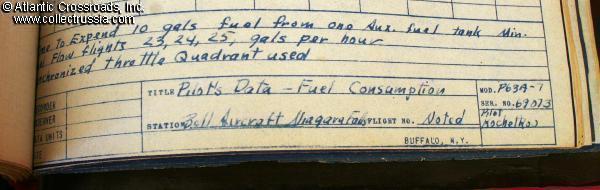 © Atlantic Crossroads, Inc.
www.collectrussia.com
me To Expend 10 gals fuel from one Aux. fuel tank Min.
Fuel Flow flights 23, 24, 25, gals per hour
nchronized throttle Quadrant used
TITLE Pilot's Data - Fuel Consumption
MOD. P63A-1
SER. NO. 69013
DATA UNITS
STATION Bell Aircraft Niagara Falls FLIGHT NO. Noted
Pilot
Kochetkov
BUFFALO, N.Y.